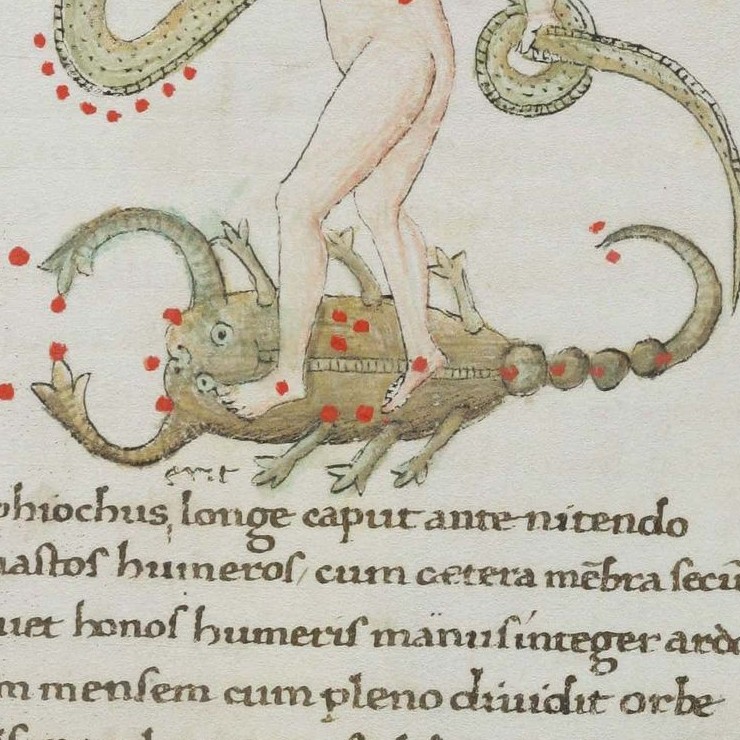 erit
phiochus, longe caput ante nitendo
astos humeros/ cum cetera mēbra secū
uet honos humeris manus integer ardo
m mensem cum pleno diuidit orbe